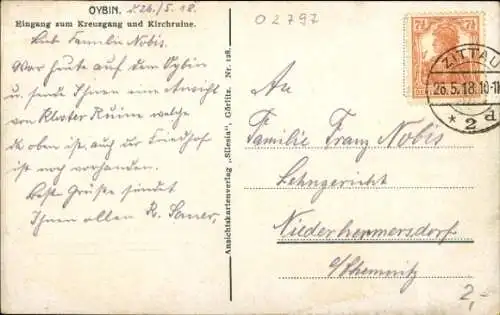 OYBIN. d. 26./5. 18.
Eingang zum Kreuzgang und Kirchruine.
Lieb. Familie Nobis.
War heute auf dem Oybin
u. sende Ihnen eine Ansicht
von Kloster Ruine welche
da oben ist, auch der Friedhof
ist noch vorhanden.
Beste Grüße sendet
Ihnen allen R. Sauer.
Ansichtskartenverlag „Silesia", Görlitz. Nr. 128.
02797
An
Familie Franz Nobis
Lehngericht
Niederhermersdorf
b/Chemnitz
7½ 7½
ZITTAU
26.5.18.10-11
* 2 d
2,-